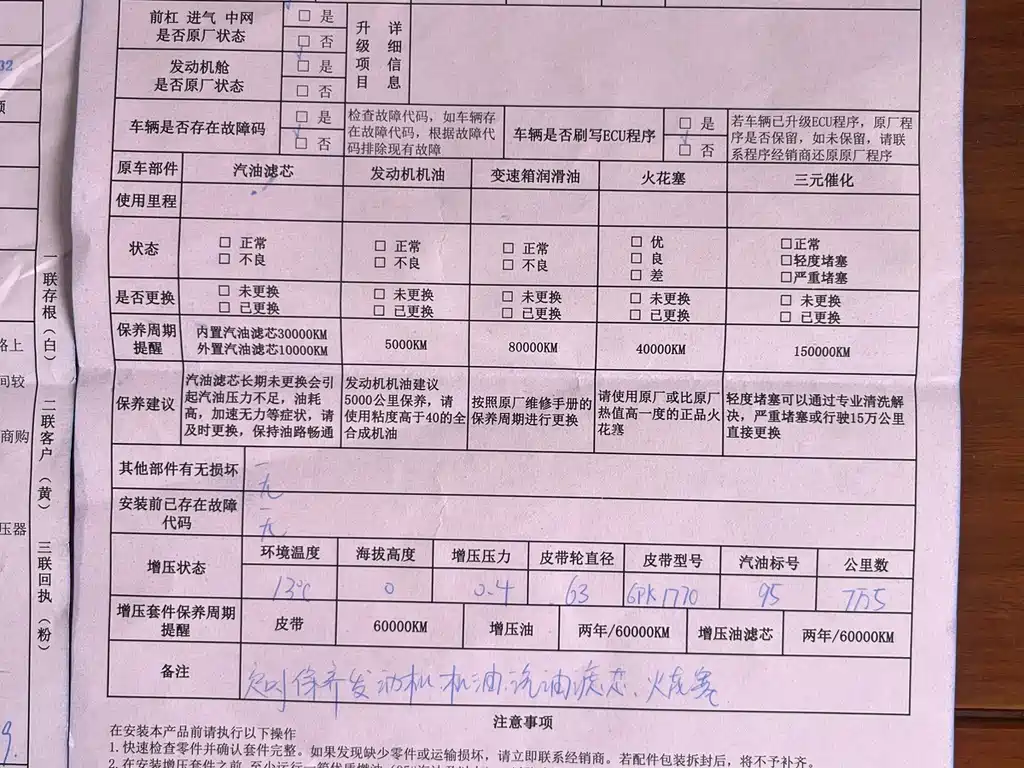 前杠 进气 中网
是否原厂状态
□ 是
□ 否
升级项目
详细信息
发动机舱
是否原厂状态
□ 是
□ 否
车辆是否存在故障码
□ 是
□ 否
检查故障代码，如车辆存
在故障代码，根据故障代
码排除现有故障
车辆是否刷写ECU程序
□ 是
□ 否
若车辆已升级ECU程序，原厂程
序是否保留，如未保留，请联
系程序经销商还原原厂程序
原车部件 汽油滤芯 发动机机油 变速箱润滑油 火花塞 三元催化
使用里程
状态
□ 正常
□ 不良
□ 正常
□ 不良
□ 正常
□ 不良
□ 优
□ 良
□ 差
□正常
□轻度堵塞
□严重堵塞
是否更换
□ 未更换
□ 已更换
□ 未更换
□ 已更换
□ 未更换
□ 已更换
□ 未更换
□ 已更换
□ 未更换
□ 已更换
保养周期
提醒
内置汽油滤芯30000KM
外置汽油滤芯10000KM
5000KM
80000KM
40000KM
150000KM
保养建议
汽油滤芯长期未更换会引
起汽油压力不足，油耗
高，加速无力等症状，请
及时更换，保持油路畅通
发动机机油建议
5000公里保养，请
使用粘度高于40的全
合成机油
按照原厂维修手册的
保养周期进行更换
请使用原厂或比原厂
热值高一度的正品火
花塞
轻度堵塞可以通过专业清洗解
决，严重堵塞或行驶15万公里
直接更换
其他部件有无损坏
无
安装前已存在故障
代码
无
增压状态
环境温度 海拔高度 增压压力 皮带轮直径 皮带型号 汽油标号 公里数
13℃ 0 0.4 63 6PK1770 95 7万5
增压套件保养周期
提醒
皮带 60000KM 增压油 两年/60000KM 增压油滤芯 两年/60000KM
备注
定时保养发动机机油.汽油滤芯.火花塞
注意事项
在安装本产品前请执行以下操作
1.快速检查零件并确认套件完整。如果发现缺少零件或运输损坏，请立即联系经销商。若配件包装拆封后，将不予补齐。
一联存根（白） 二联客户（黄） 三联回执（粉）
32
路上
间较
商购
压器
9.